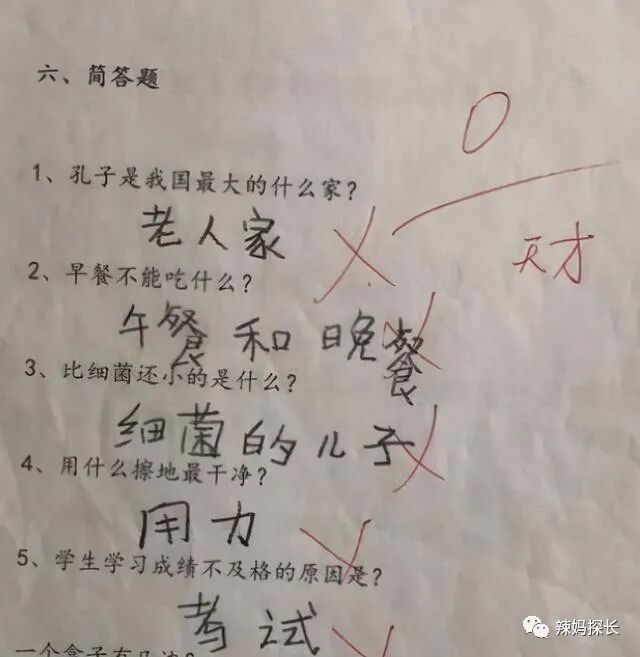 六、简答题
0
天才
1、孔子是我国最大的什么家?
老人家
2、早餐不能吃什么?
午餐和晚餐
3、比细菌还小的是什么?
细菌的儿子
4、用什么擦地最干净?
用力
5、学生学习成绩不及格的原因是?
考试
一个盒子有几边?
辣妈探长